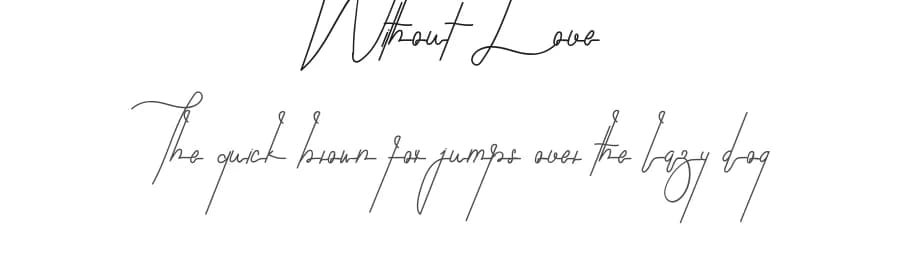 Without Love
The quick brown fox jumps over the lazy dog